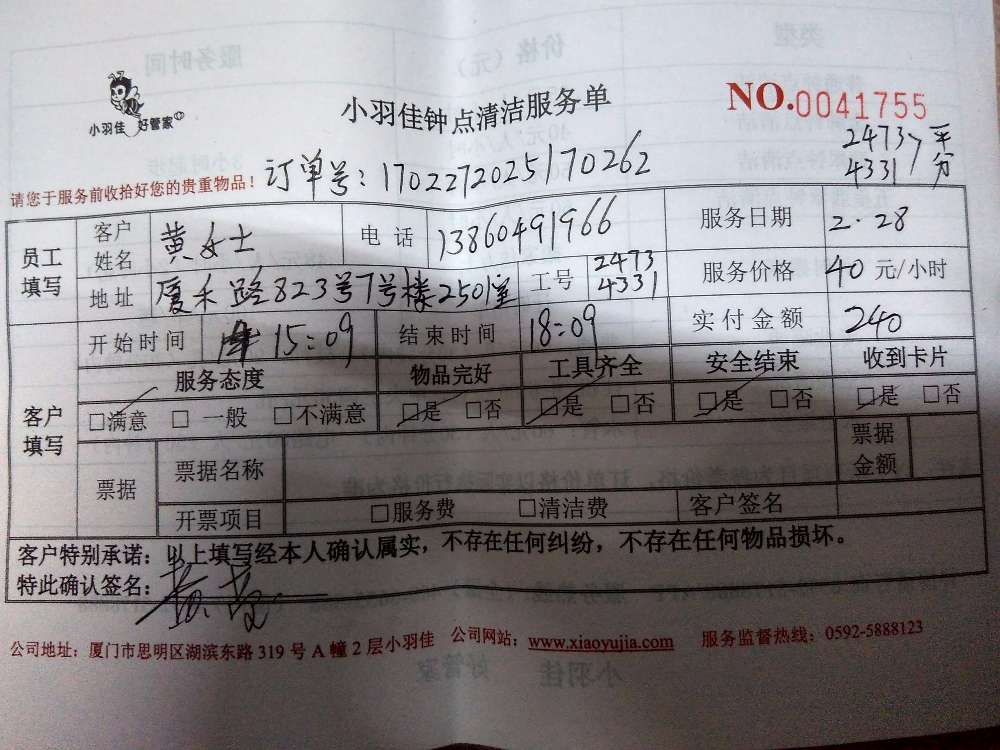 小羽佳 好管家
小羽佳钟点清洁服务单
NO.0041755
2473 平
4331 分
请您于服务前收拾好您的贵重物品！ 订单号：1702272025170262
员工填写 客户姓名 黄女士 电话 13860491966 服务日期 2.28
地址 厦禾路823号7号楼2501室 工号 2473 4331 服务价格 40 元/小时
开始时间 15:09 结束时间 18:09 实付金额 240
客户填写 服务态度 物品完好 工具齐全 安全结束 收到卡片
□满意 □一般 □不满意 □是 □否 □是 □否 □是 □否 □是 □否
票据 票据名称 票据金额
开票项目 □服务费 □清洁费 客户签名
客户特别承诺：以上填写经本人确认属实，不存在任何纠纷，不存在任何物品损坏。
特此确认签名：
公司地址：厦门市思明区湖滨东路 319 号 A 幢 2 层小羽佳 公司网站：www.xiaoyujia.com 服务监督热线：0592-5888123